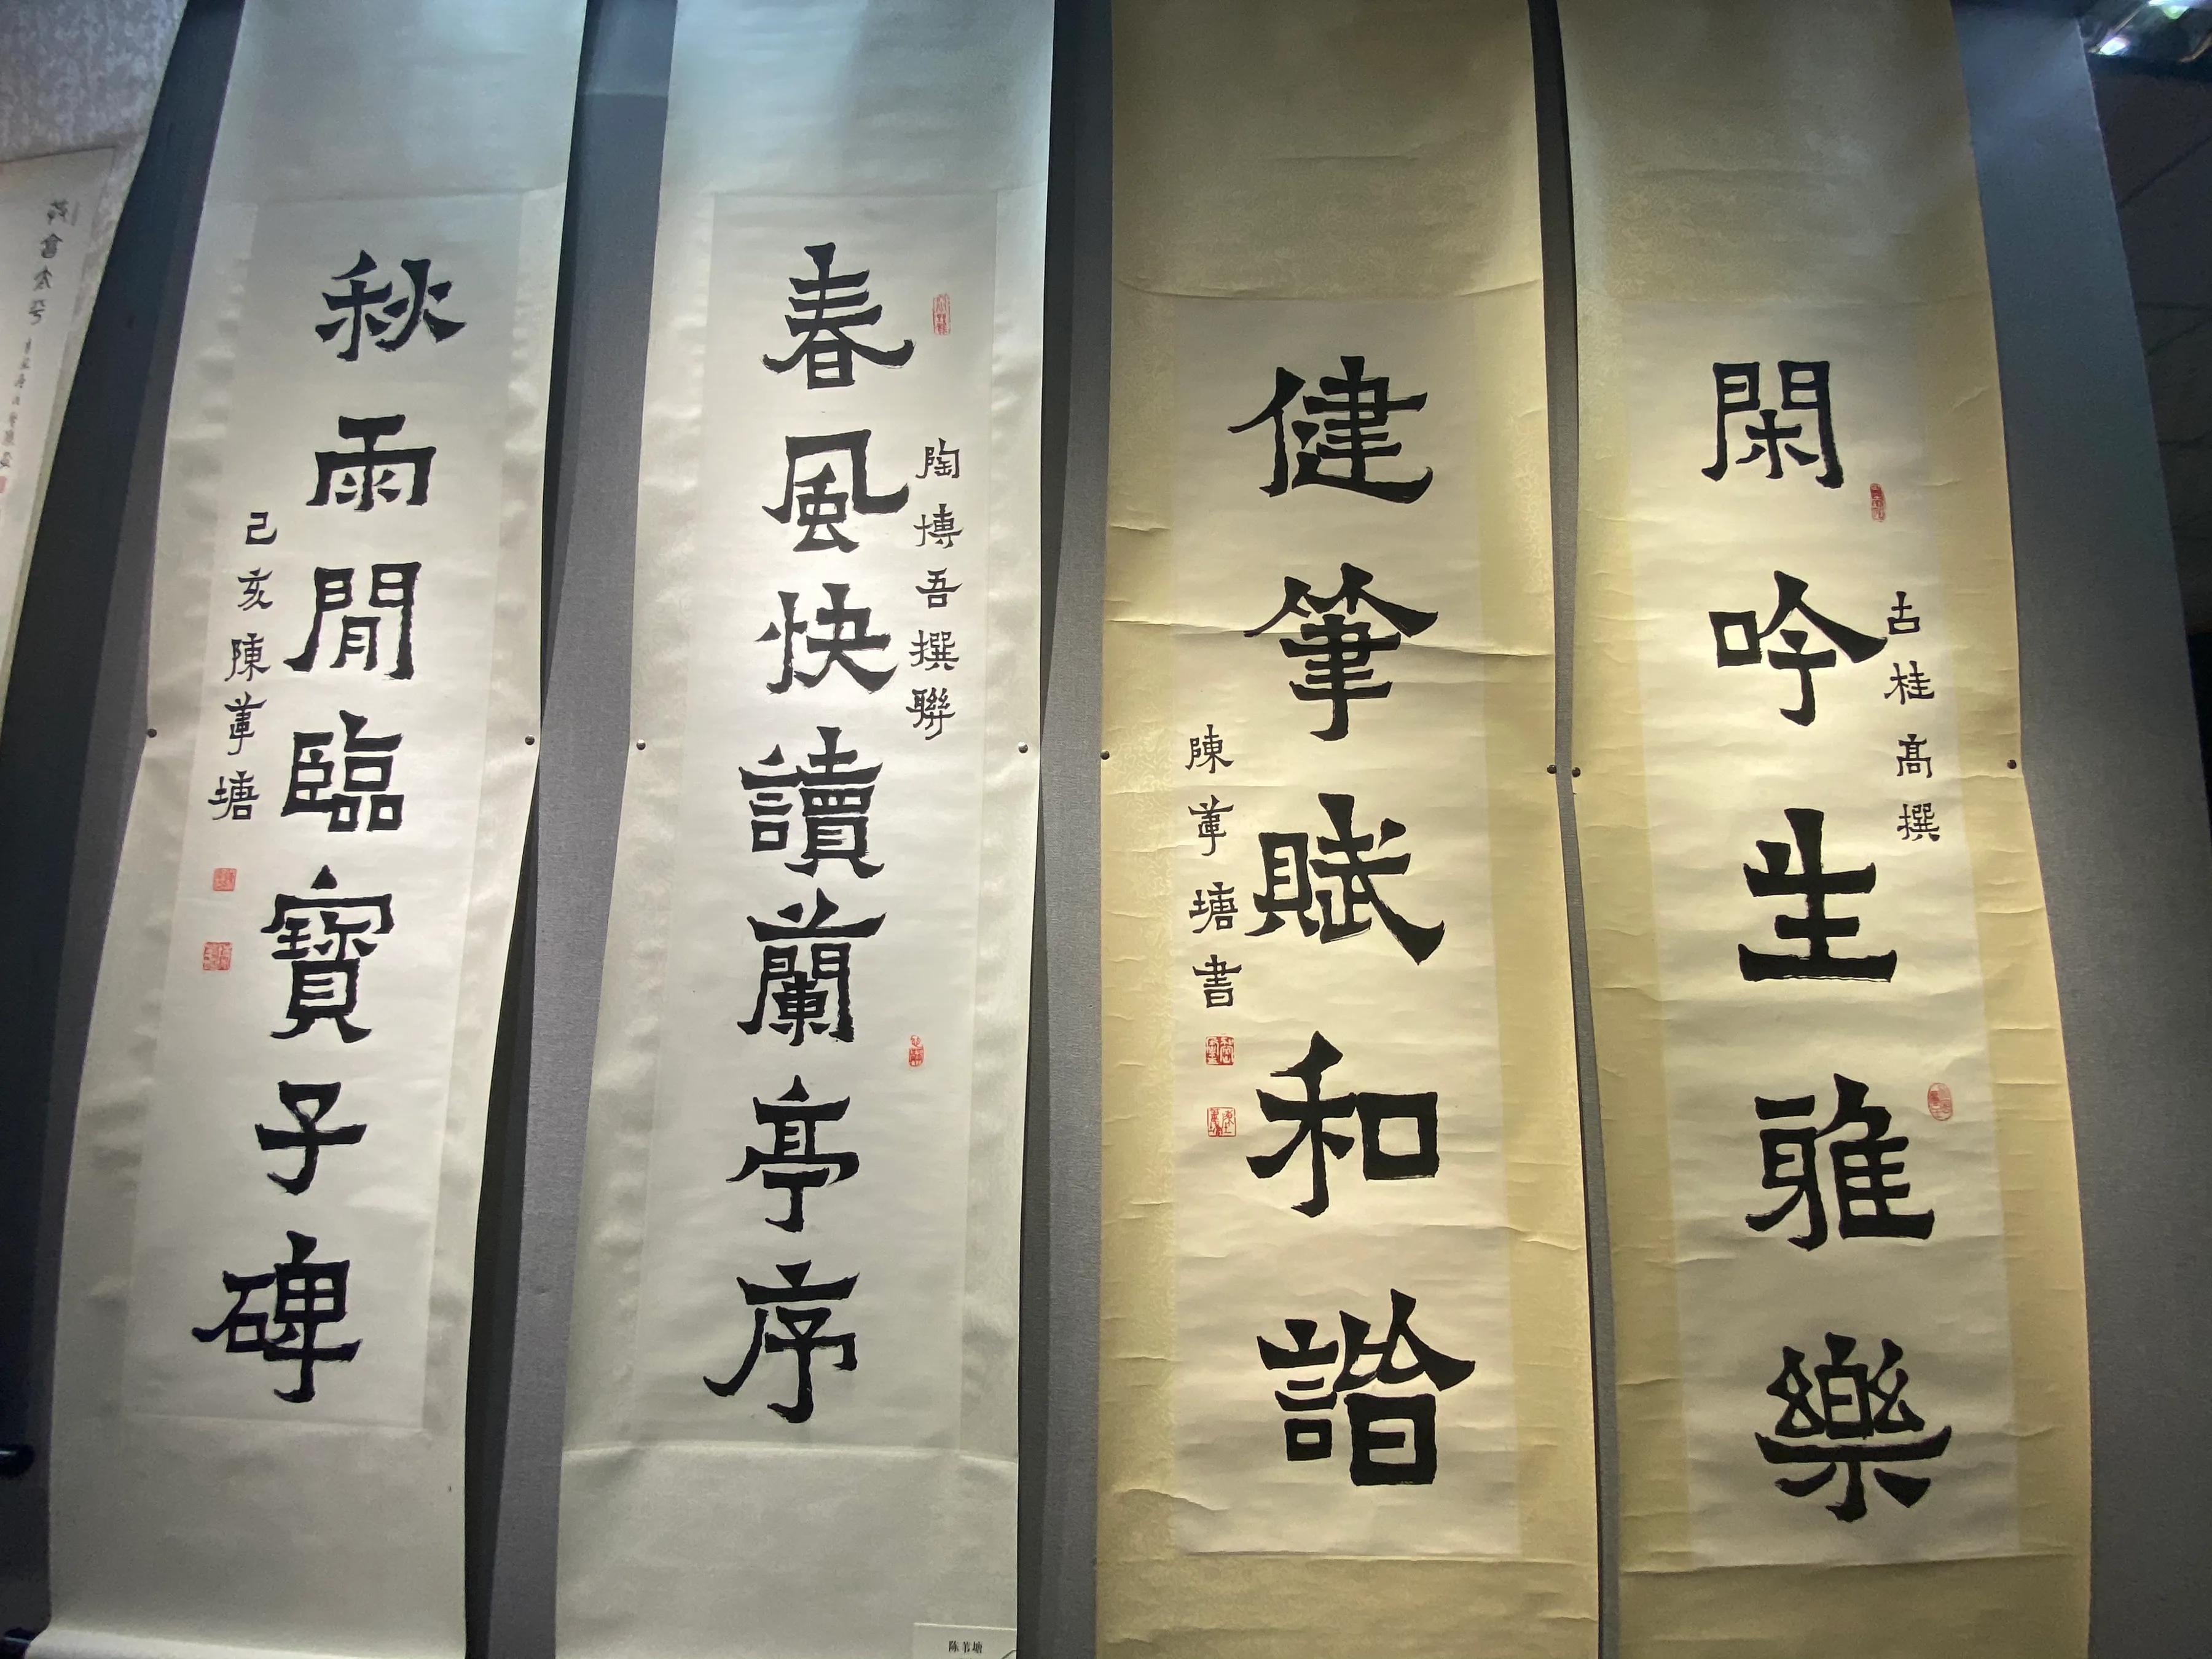 閑吟生雅樂
古桂高撰
健筆賦和諧
陳葦塘書
春風快讀蘭亭序
陶博吾撰聯
秋雨閒臨寶子碑
己亥陳葦塘
陈苇塘